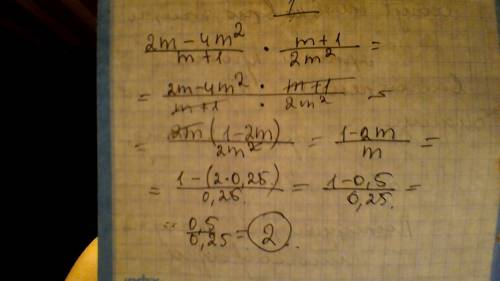 1
(2m-4m²)/(m+1) · (m+1)/(2m²) =
= (2m-4m²)/(m+1) · (m+1)/(2m²) =
= 2m(1-2m)/(2m²) = (1-2m)/m =
= (1-(2·0,25))/0,25 = (1-0,5)/0,25 =
= 0,5/0,25 = 2